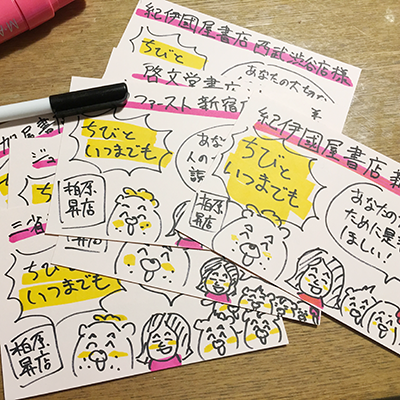 紀伊國屋書店西武渋谷店様
ちびと
あなたの大切
啓文堂書
ファースト新宿
ちびと
いつまでも!
あな
人の
柏原
昇店
紀伊國屋書店
ちびと
いつまでも!
あなたの
ために是
ほしい!
屋書
ジュ
ち
三省
ちびと
いつまでも!
柏原
昇店